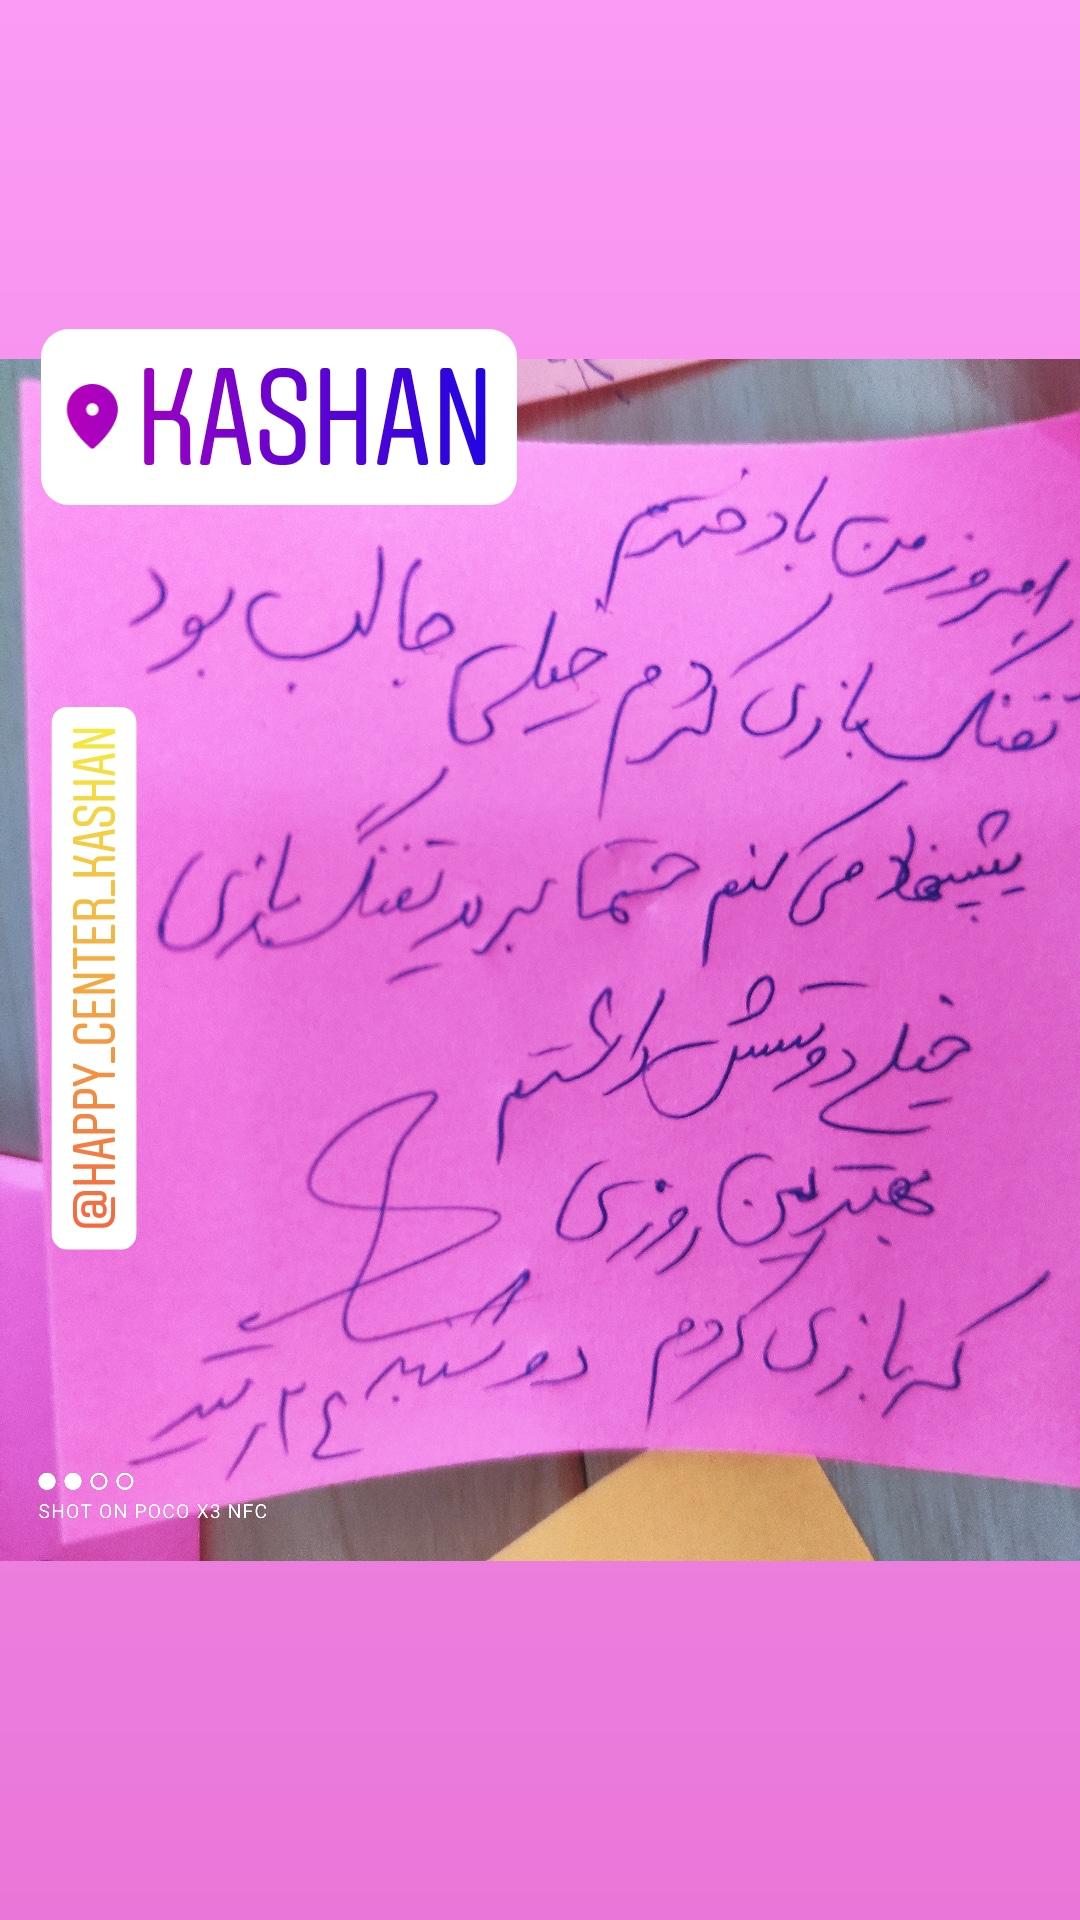 KASHAN
امروز من با دخترم
تفنگ بازی کردم خیلی جالب بود
پیشنهاد می کنم حتما برید تفنگ بازی
خیلی دوستش داشتم
بهترین روزی
که بازی کردم دوشنبه
۲٤ / تیر
@HAPPY_CENTER_KASHAN
SHOT ON POCO X3 NFC